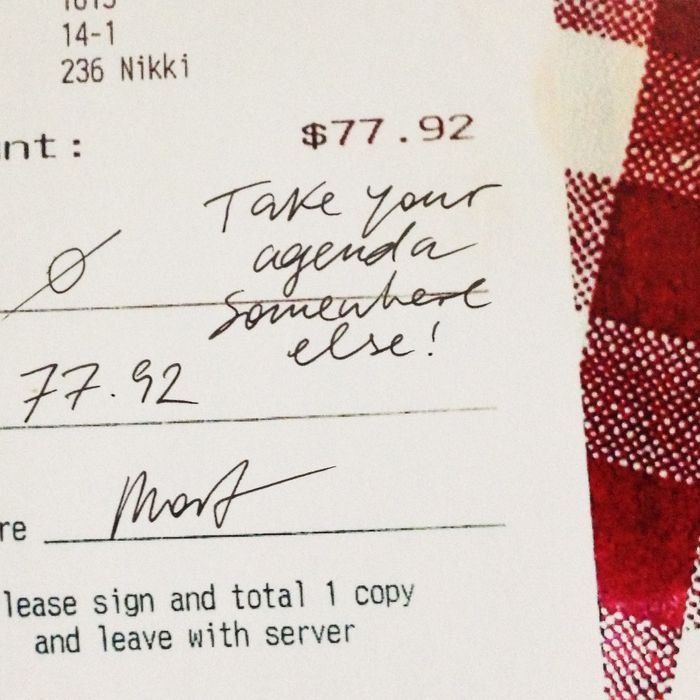 14-1
236 Nikki
nt: $77.92
Take your
agenda
Ø
somewhere
else!
77.92
re
lease sign and total 1 copy
and leave with server